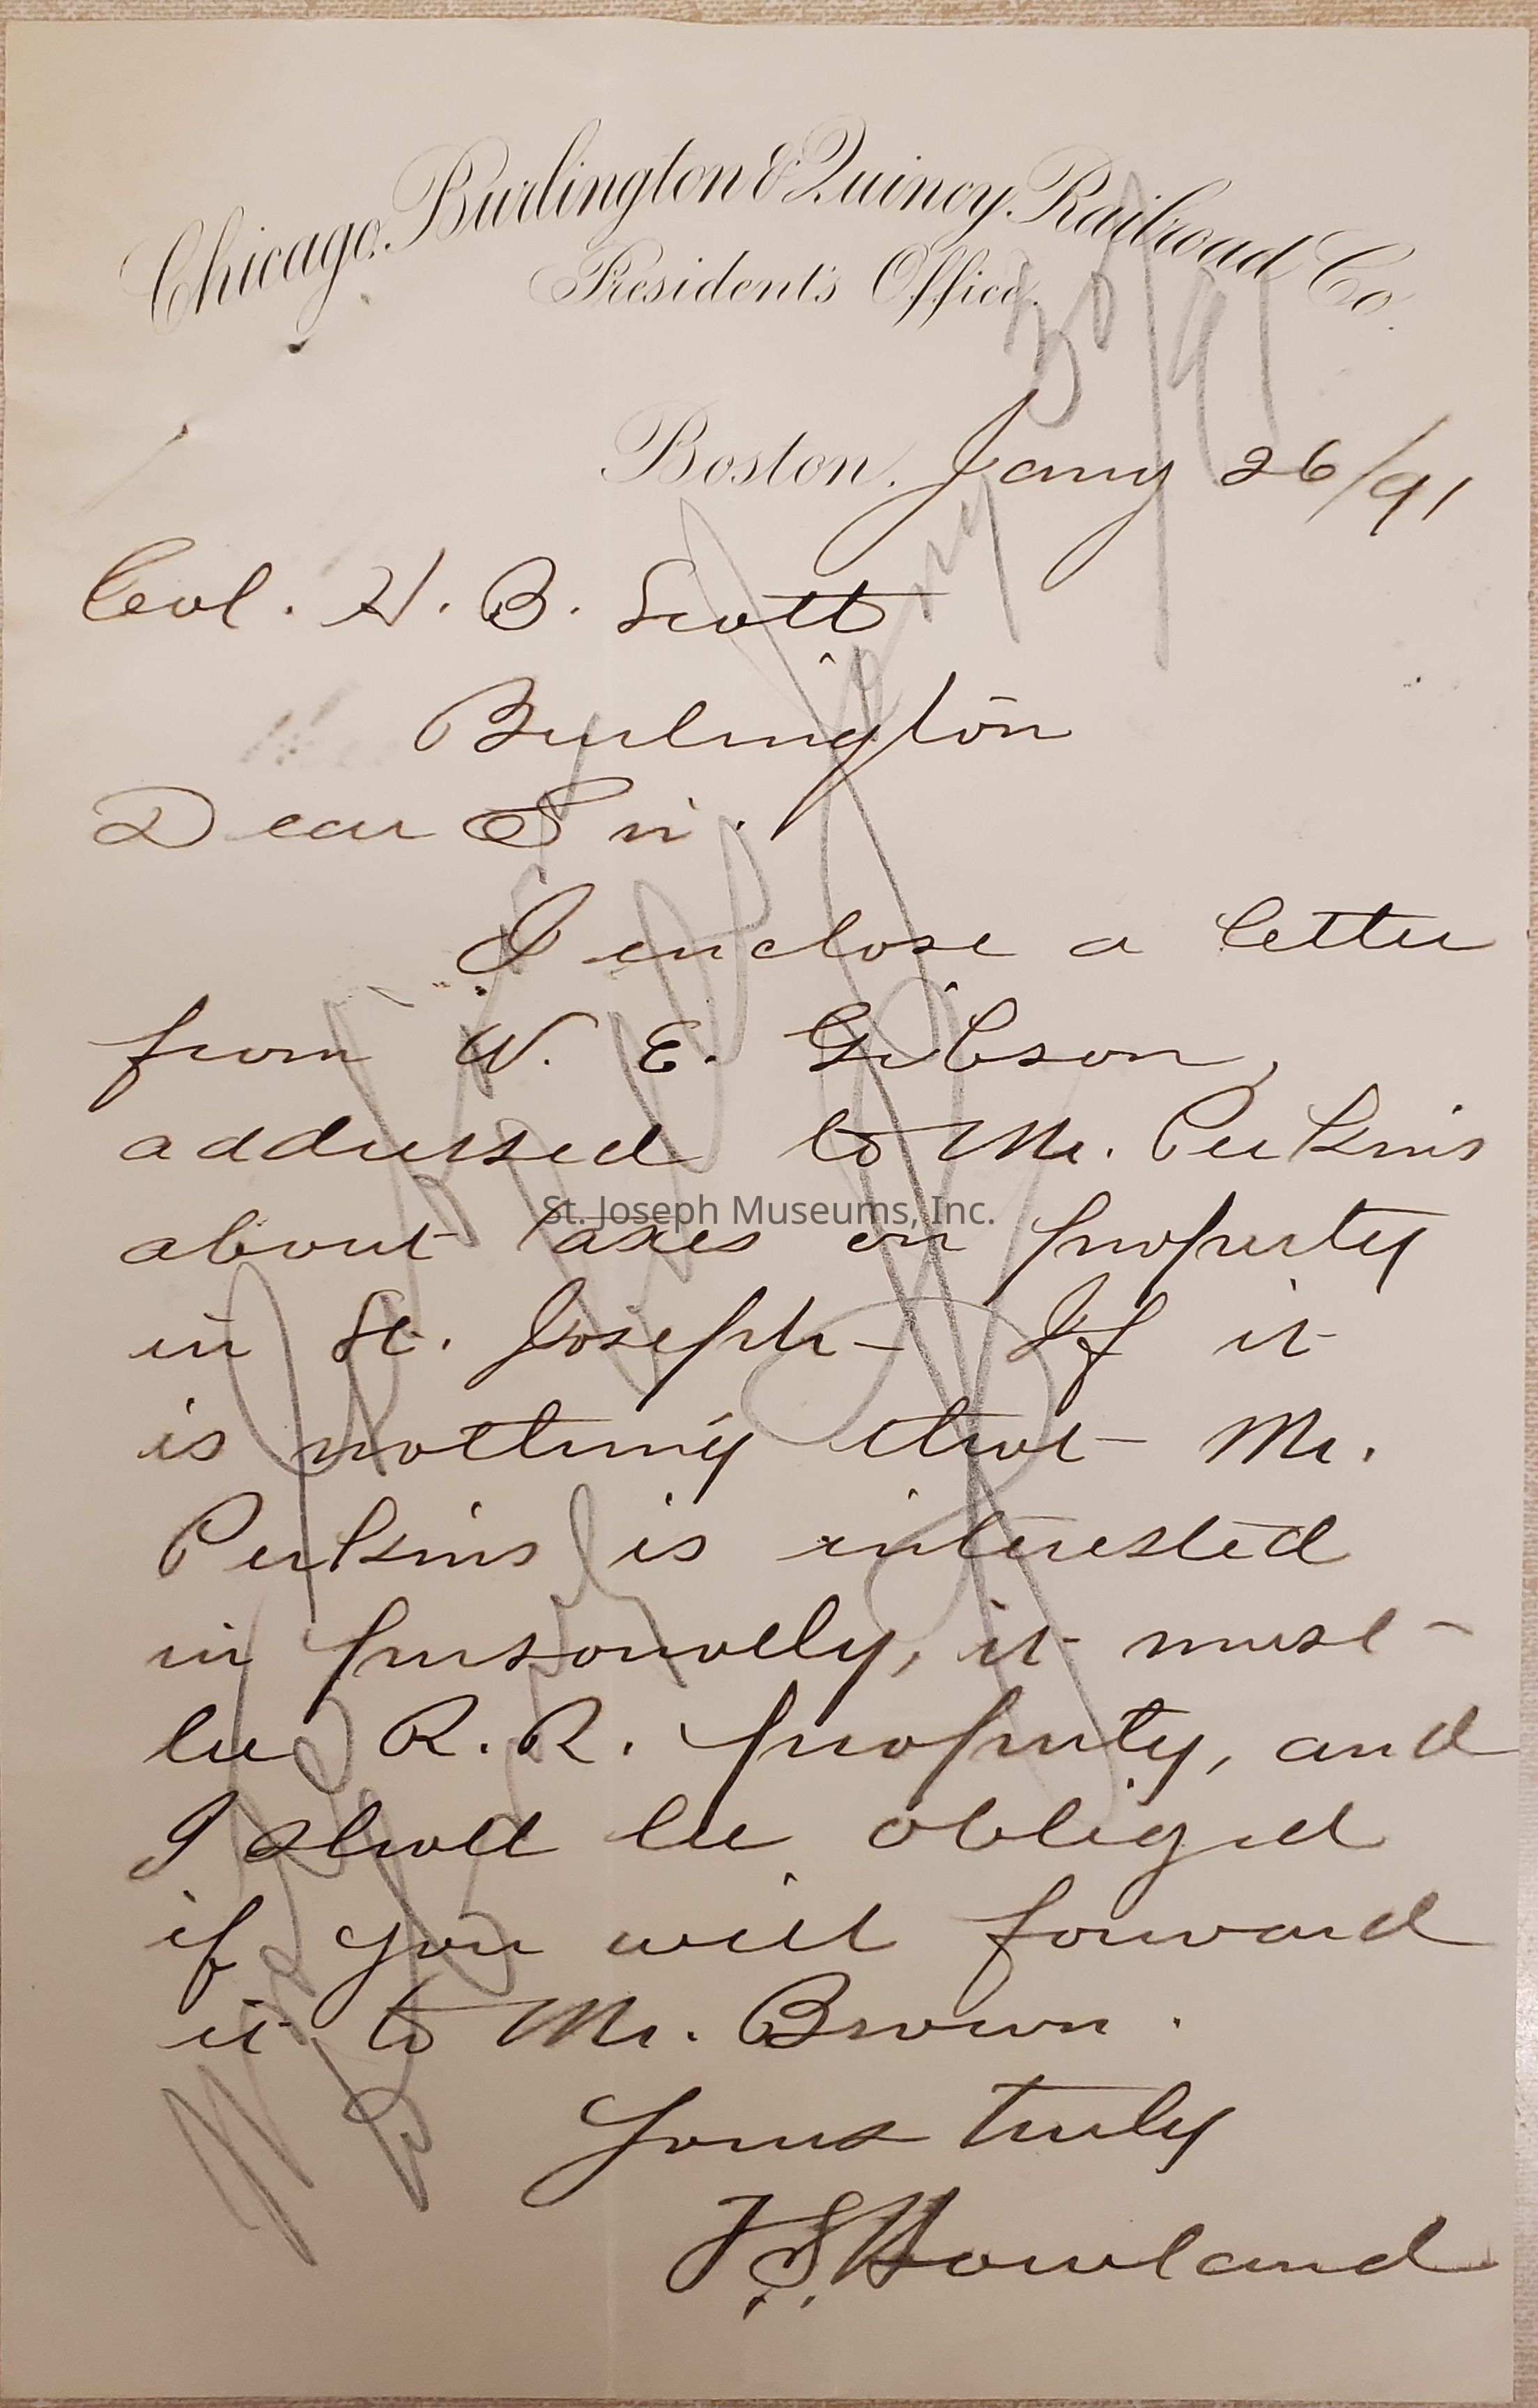 Chicago, Burlington & Quincy Railroad Co.
President's Office.
Boston, Jany 26/91
Col. H. B. Scott
Burlington
Dear Sir.
I enclose a letter
from W. E. Gibson,
addressed to Mr. Perkins
about taxes on property
in St. Joseph – If it
is nothing that Mr.
Perkins is interested
in personally, it must
be R. R. property, and
I shall be obliged
if you will forward
it to Mr. Brown.
Yours truly
T S Howland
Jany 30/91
St. Joseph Museums, Inc.